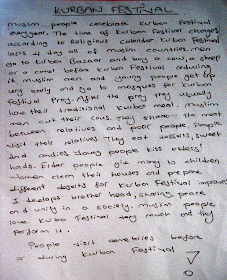 KURBAN FESTIVAL
Muslim people celebrate Kurban Festival
everyyear. The time of Kurban Festival changes
according to Religious Calendar. Kurban Festival
lasts 4 day all of muslim countries. men
go to Kurban Bazaar and buy a cow, a sheep
or a camel before Kurban Festival. during
it muslim men and young people get up
very early and go to mosques for Kurban
Festival Pray. After pray they usually
have their traditional Kurban meal. Muslim
men cut their cows. They share the meat
between relatives and poor people. People
visit their relatives. They eat dessert, sweet
and candies. Young people kiss elders'
hands. Elder people give money to children
Women clean their houses and prepare
different deserts for Kurban Festival
It develops brother hood, sharing, peace
and unity in a society. Muslim people
love Kurban Festival very much and they
perform it.
People visit cemetries before
or during Kurban Festival